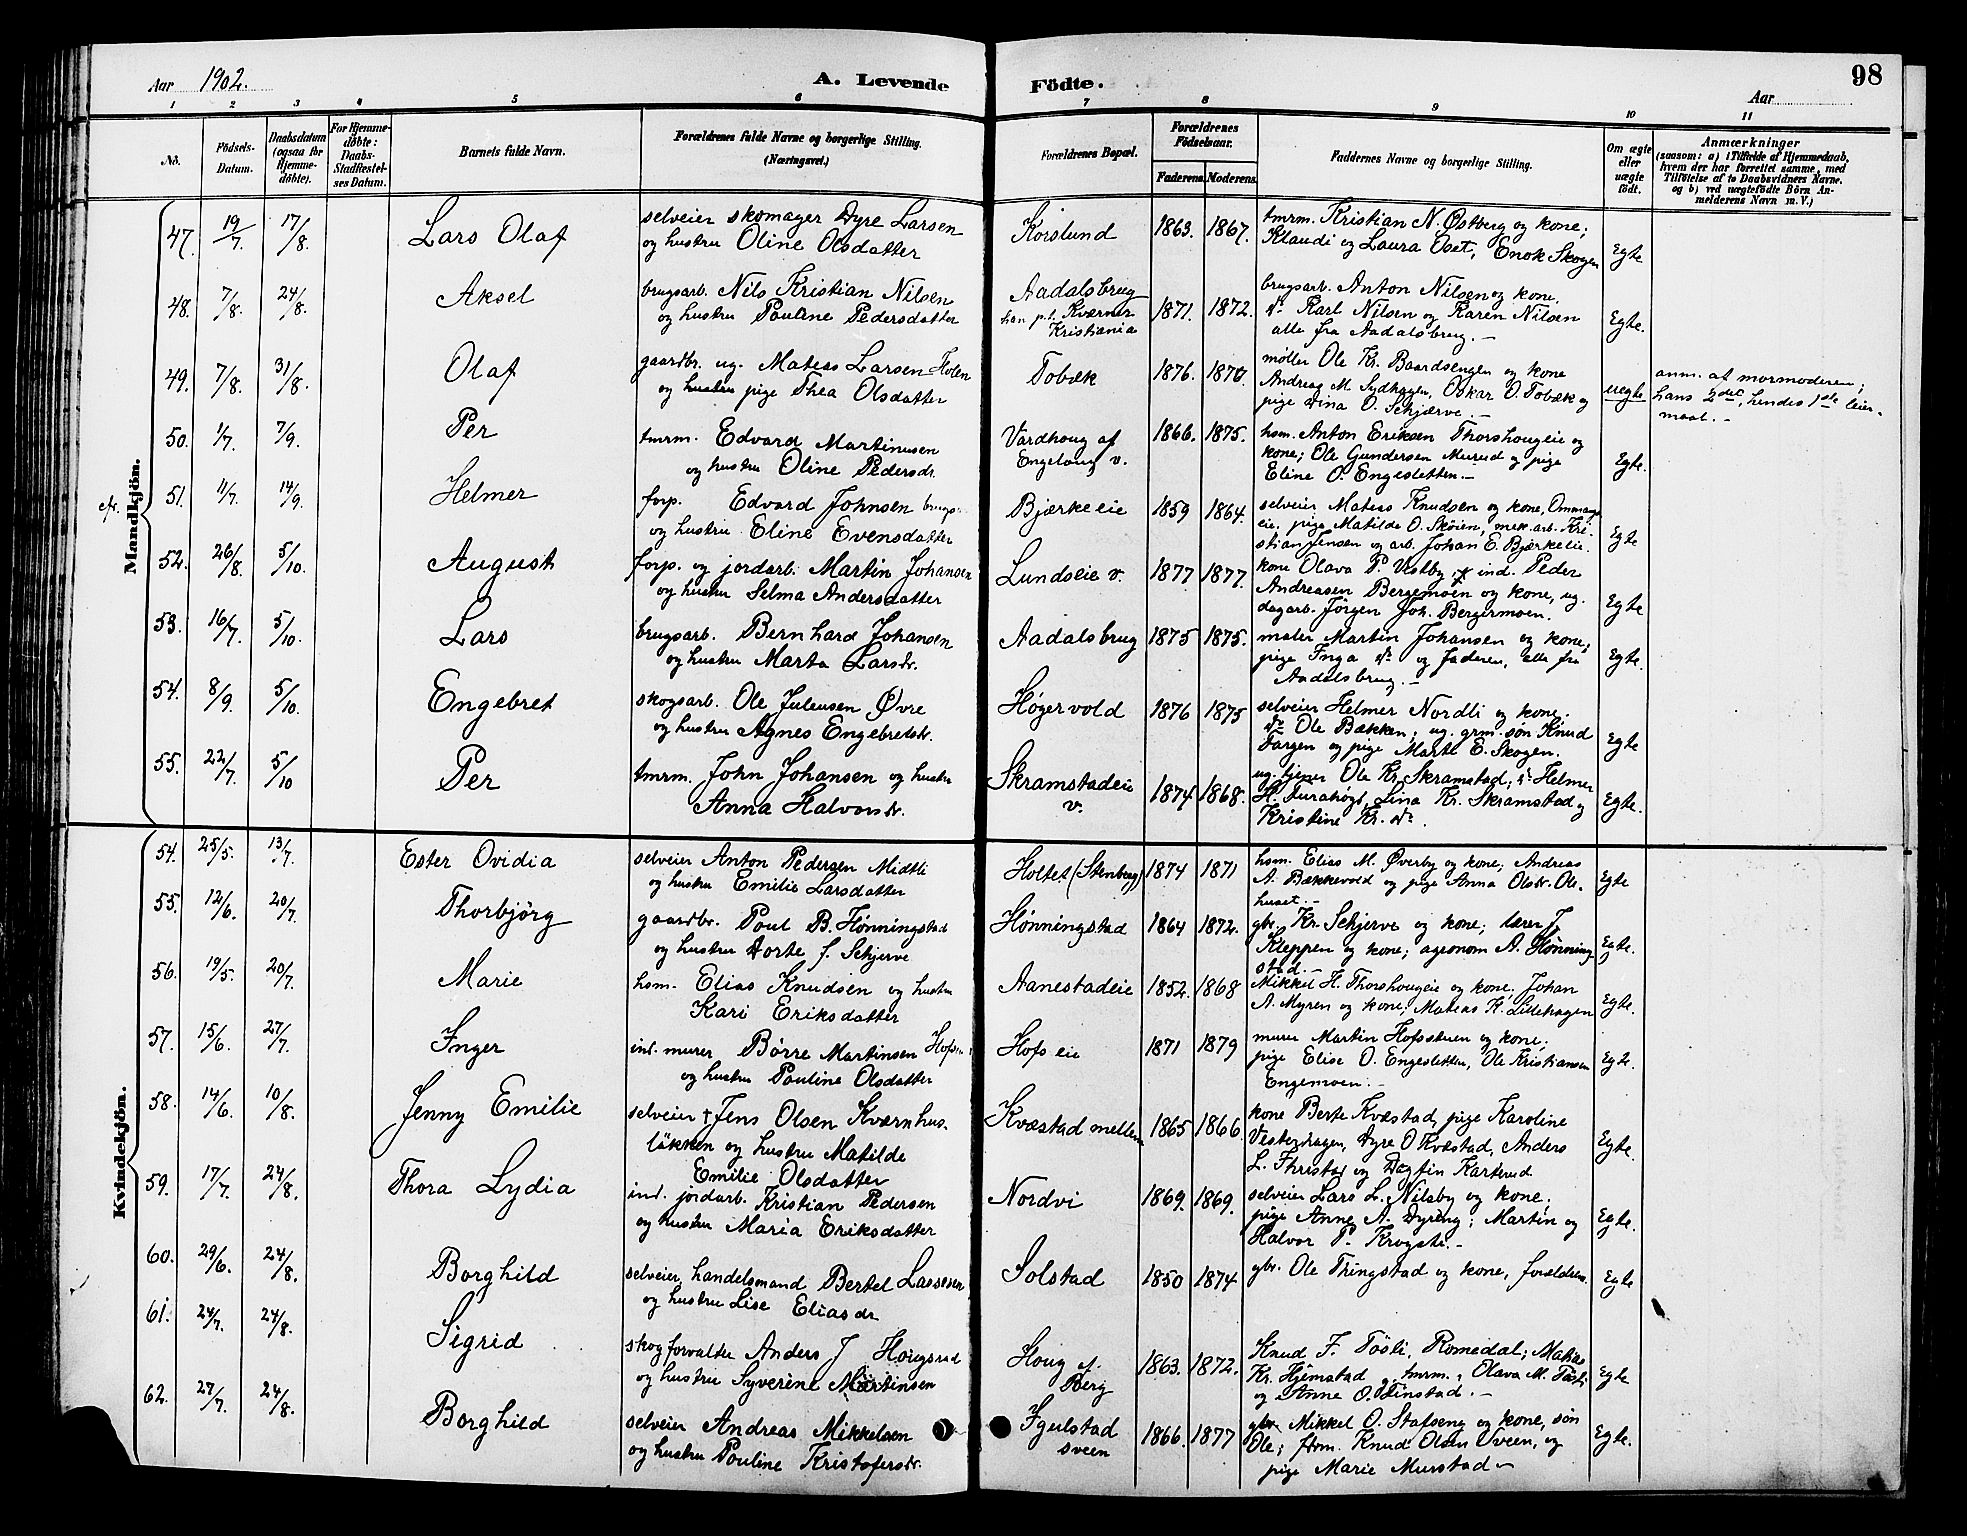 Aar 1902.
A. Levende Födte.
98
Aar
1 2 3 4 5 6 7 8 9 10 11
No. Födsels-Datum. Daabsdatum (ogsaa for Hjemme-döbte). For Hjemme-döbte: Daabs-Stadfæstel-ses Datum. Barnets fulde Navn. Forældrenes fulde Navne og borgerlige Stilling. (Næringsvei.) Forældrenes Bopæl. Forældrenes Födselsaar. Faderens. Moderens. Faddernes Navne og borgerlige Stilling. Om ægte eller uægte födt. Anmærkninger (saasom: a) i Tilfælde af Hjemmedaab, hvem der har forrettet samme, med Tilföielse af to Daabsvidners Navne, og b) ved uægtefödte Börn An-melderens Navn m. V.)
Mandkjön.
47. 19/7. 17/8. Lars Olaf selveier skomager Dyre Larsen Korslund 1863. 1867. tmrm. Kristian N. Østberg og kone;
og hustru Oline Olsdatter Klaudi og Laura Oset, Enok Skogen Egte
48. 7/8. 24/8. Aksel brugsarb. Nils Kristian Nilsen Aadalsbrug 1871. 1872. brugsarb. Anton Nilsen og kone.
og hustru Pauline Pedersdatter han p.t. Kværner Kristiania do Karl Nilsen og Karen Nilsen Egte.
alle fra Aadalsbrug. —
49. 7/8. 31/8. Olaf gaardbr. ug. Matias Larsen Holen Tobæk 1876. 1870. møller Ole Kr. Baardsengen og kone uegte anm. af mormoderen;
og hustru pige Thea Olsdatter Andreas M. Sydhagen, Oskar O. Tobæk og hans 2det, hendes 1ste leier-
pige Dina O. Schjærve. — maal. —
50. 1/7. 7/9. Per tmrm. Edvard Martinusen Vardhoug af 1866. 1875. hsm. Anton Eriksen Thorshougeie og
og hustru Oline Pedersdr. Engeloug v. kone; Ole Gundersen Murud og pige Egte.
Eline O. Engesletten. —
51. 11/7. 14/9. Helmer forp. Edvard Johnsen Bjærkeeie 1859 1864. selveier Matias Knudsen og kone,
og hustru Eline Evensdatter eie, pige Matilde O. Skøien, mek. arb. Kri- Egte
stian Jensen og arb. Johan E. Bjærkeeie.
52. 26/8. 5/10. August forp. og jordarb. Martin Johansen Lundseie v. 1877 1877. kone Olava P. Vestby, ind. Peder
og hustru Selma Andersdatter Andreasen Bergemoen og kone, ug. Egte.
dagarb. Jørgen Joh. Bergermoen.
53. 16/7. 5/10. Lars brugsarb. Bernhard Johansen Aadalsbrug 1875 1875. maler Martin Johansen og kone,
og hustru Marta Larsdr. pige Inga do og faderen, alle fra Egte.
Aadalsbrug. —
54. 8/9. 5/10. Engebret skogsarb. Ole Juliusen Øvre Høgervold 1876 1875 selveier Helmer Nordli og kone.
og hustru Agnes Engebretsdr. do Ole Bækken; ug. grm. søn Knud Egte
Targen og pige Marte E. Skogen.
55. 22/7. 5/10 Per tmrm. John Johansen og hustru Skramstadeie 1874 1868. ug. tjener Ole Kr. Skramstad, do Helmer
Anna Halvorsdr. v. H. Furahøgt, Lina Kr. Skramstad og Egte.
Kristine Kr. do.
Kvindekjön.
54. 25/5. 13/7. Ester Ovidia selveier Anton Pedersen Midtli Holtet (Stenberg) 1874 1871 hsm. Elias M. Øverby og kone; Andreas
og hustru Emilie Larsdatter A. Bækkevold og pige Anna Olsdr. Ole- Egte
huset. —
55. 12/6. 20/7. Thorbjörg gaardbr. Poul B. Hønningstad Hønningstad 1864 1872. gbr. Kr. Schjerve og kone; lærer J.
og hustru Dorte f. Schjerve Kleppen og kone; agronom A. Hønning- Egte.
stad. —
56. 19/5. 20/7. Marie hsm. Elias Knudsen og hustru Aanestadeie 1852. 1868 Mikkel H. Thorshougeie og kone, Johan
Kari Eriksdatter A. Myren og kone; Matias K. Lillehagen Egte.
57. 15/6. 27/7. Inger ind. murer Børre Martinsen Hofseie 1871 1879 murer Martin Hofsstuen og kone,
og hustru Pauline Olsdatter pige Elise O. Engesletten, Ole Kristiansen Egte.
Engemoen. —
58. 14/6. 10/8. Jenny Emilie selveier † Jens Olsen Kværnhus- Kvæstad mellem 1865 1866 kone Berte Kvæstad, pige Karoline
løkken og hustru Matilde Vesterhagen, Dyre O Kvæstad, Anders Egte.
Emilie Olsdatter
59. 17/7. 24/8. Thora Lydia ind. jordarb. Kristian Pedersen Nordvi 1869. 1869. selveier Lars L. Nilsby og kone.
og hustru Maria Eriksdatter pige Anne A. Dyreng; Martin og Egte.
Halvor P. —
60. 29/6. 24/8. Borghild selveier, handelsmand Bertel Lassesen Solstad 1850 1874 gbr. Ole Thingstad og kone, forældrene Egte
og hustru Lise Eliasdr
61. 24/7. 24/8. Sigrid skogforvalter Anders J Hougsrud Houg af Berg 1863. 1872. Knud F. Tøsti, Romedal; Matias
og hustru Syverine Martinsen Kr. Hjemstad, tmrm., Olava M. Egte
og Anne O. Finstad. —
62. 27/7. 24/8. Borghild selveier Andreas Mikkelsen Igelstad sveen 1866. 1877 gbr. Mikkel O. Stafseng og kone, søn
og hustru Pauline Kristofersdr. Ole; Knud Olsen Sveen, og Egte.
pige Marie Murstad —